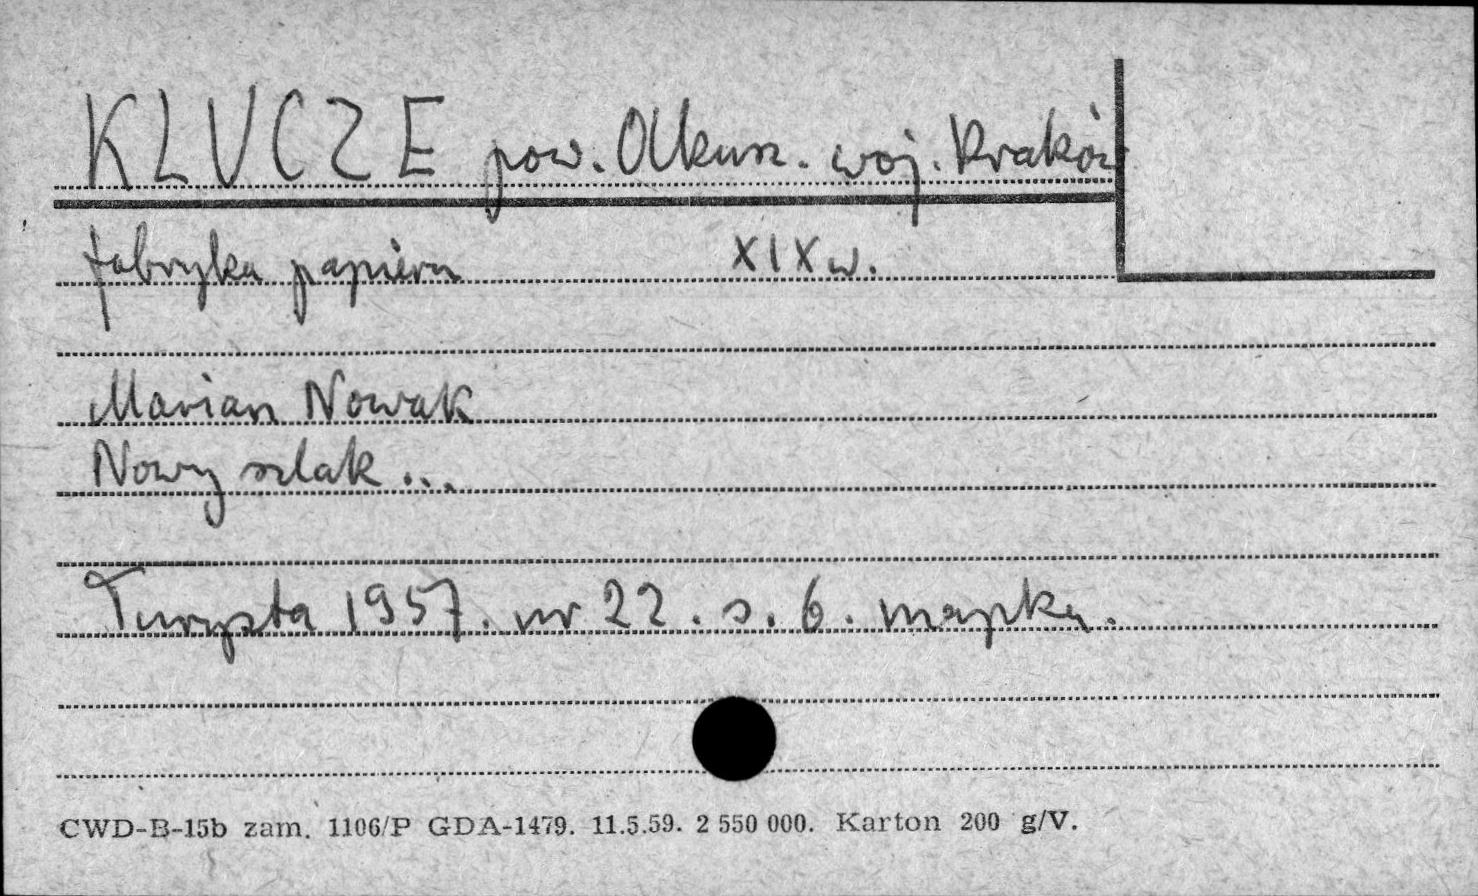 KLUCZE pow. Olkusz. woj. Kraków
fabryka papieru XIX w.
Marian Nowak
Nowy szlak ...
Turysta 1957. nr 22. s. 6. mapka.
CWD-B-15b zam. 1106/P GDA-1479. 11.5.59. 2 550 000. Karton 200 g/V.